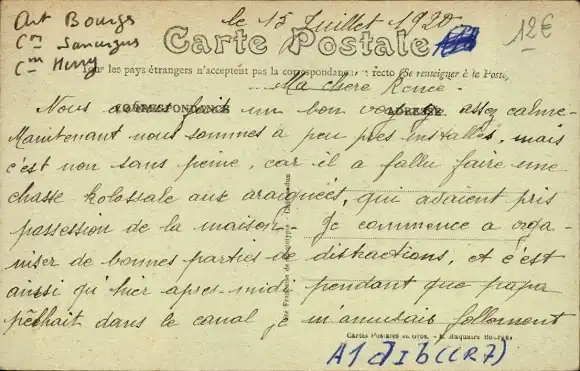 Art Bourges
le 15 Juillet 1920
Con Sancergues
Cm Herry
12€
Carte Postale
Tous les pays étrangers n'acceptent pas la correspondance au recto (Se renseigner à la Poste)
Ma chère Renée
CORRESPONDANCE
ADRESSE
Nous avons fait un bon voyage assez calme.
Maintenant nous sommes à peu près installés, mais
c'est non sans peine, car il a fallu faire une
chasse kolossale aux araignées, qui avaient pris
possession de la maison. Je commence a orga-
niser de bonnes parties de distractions, et c'est
ainsi qu'hier apres-midi pendant que papa
pêchait dans le canal je m'amusais follement
Cartes Postales en Gros. - Auxenfans Bourges
A1 d1b (CR7)